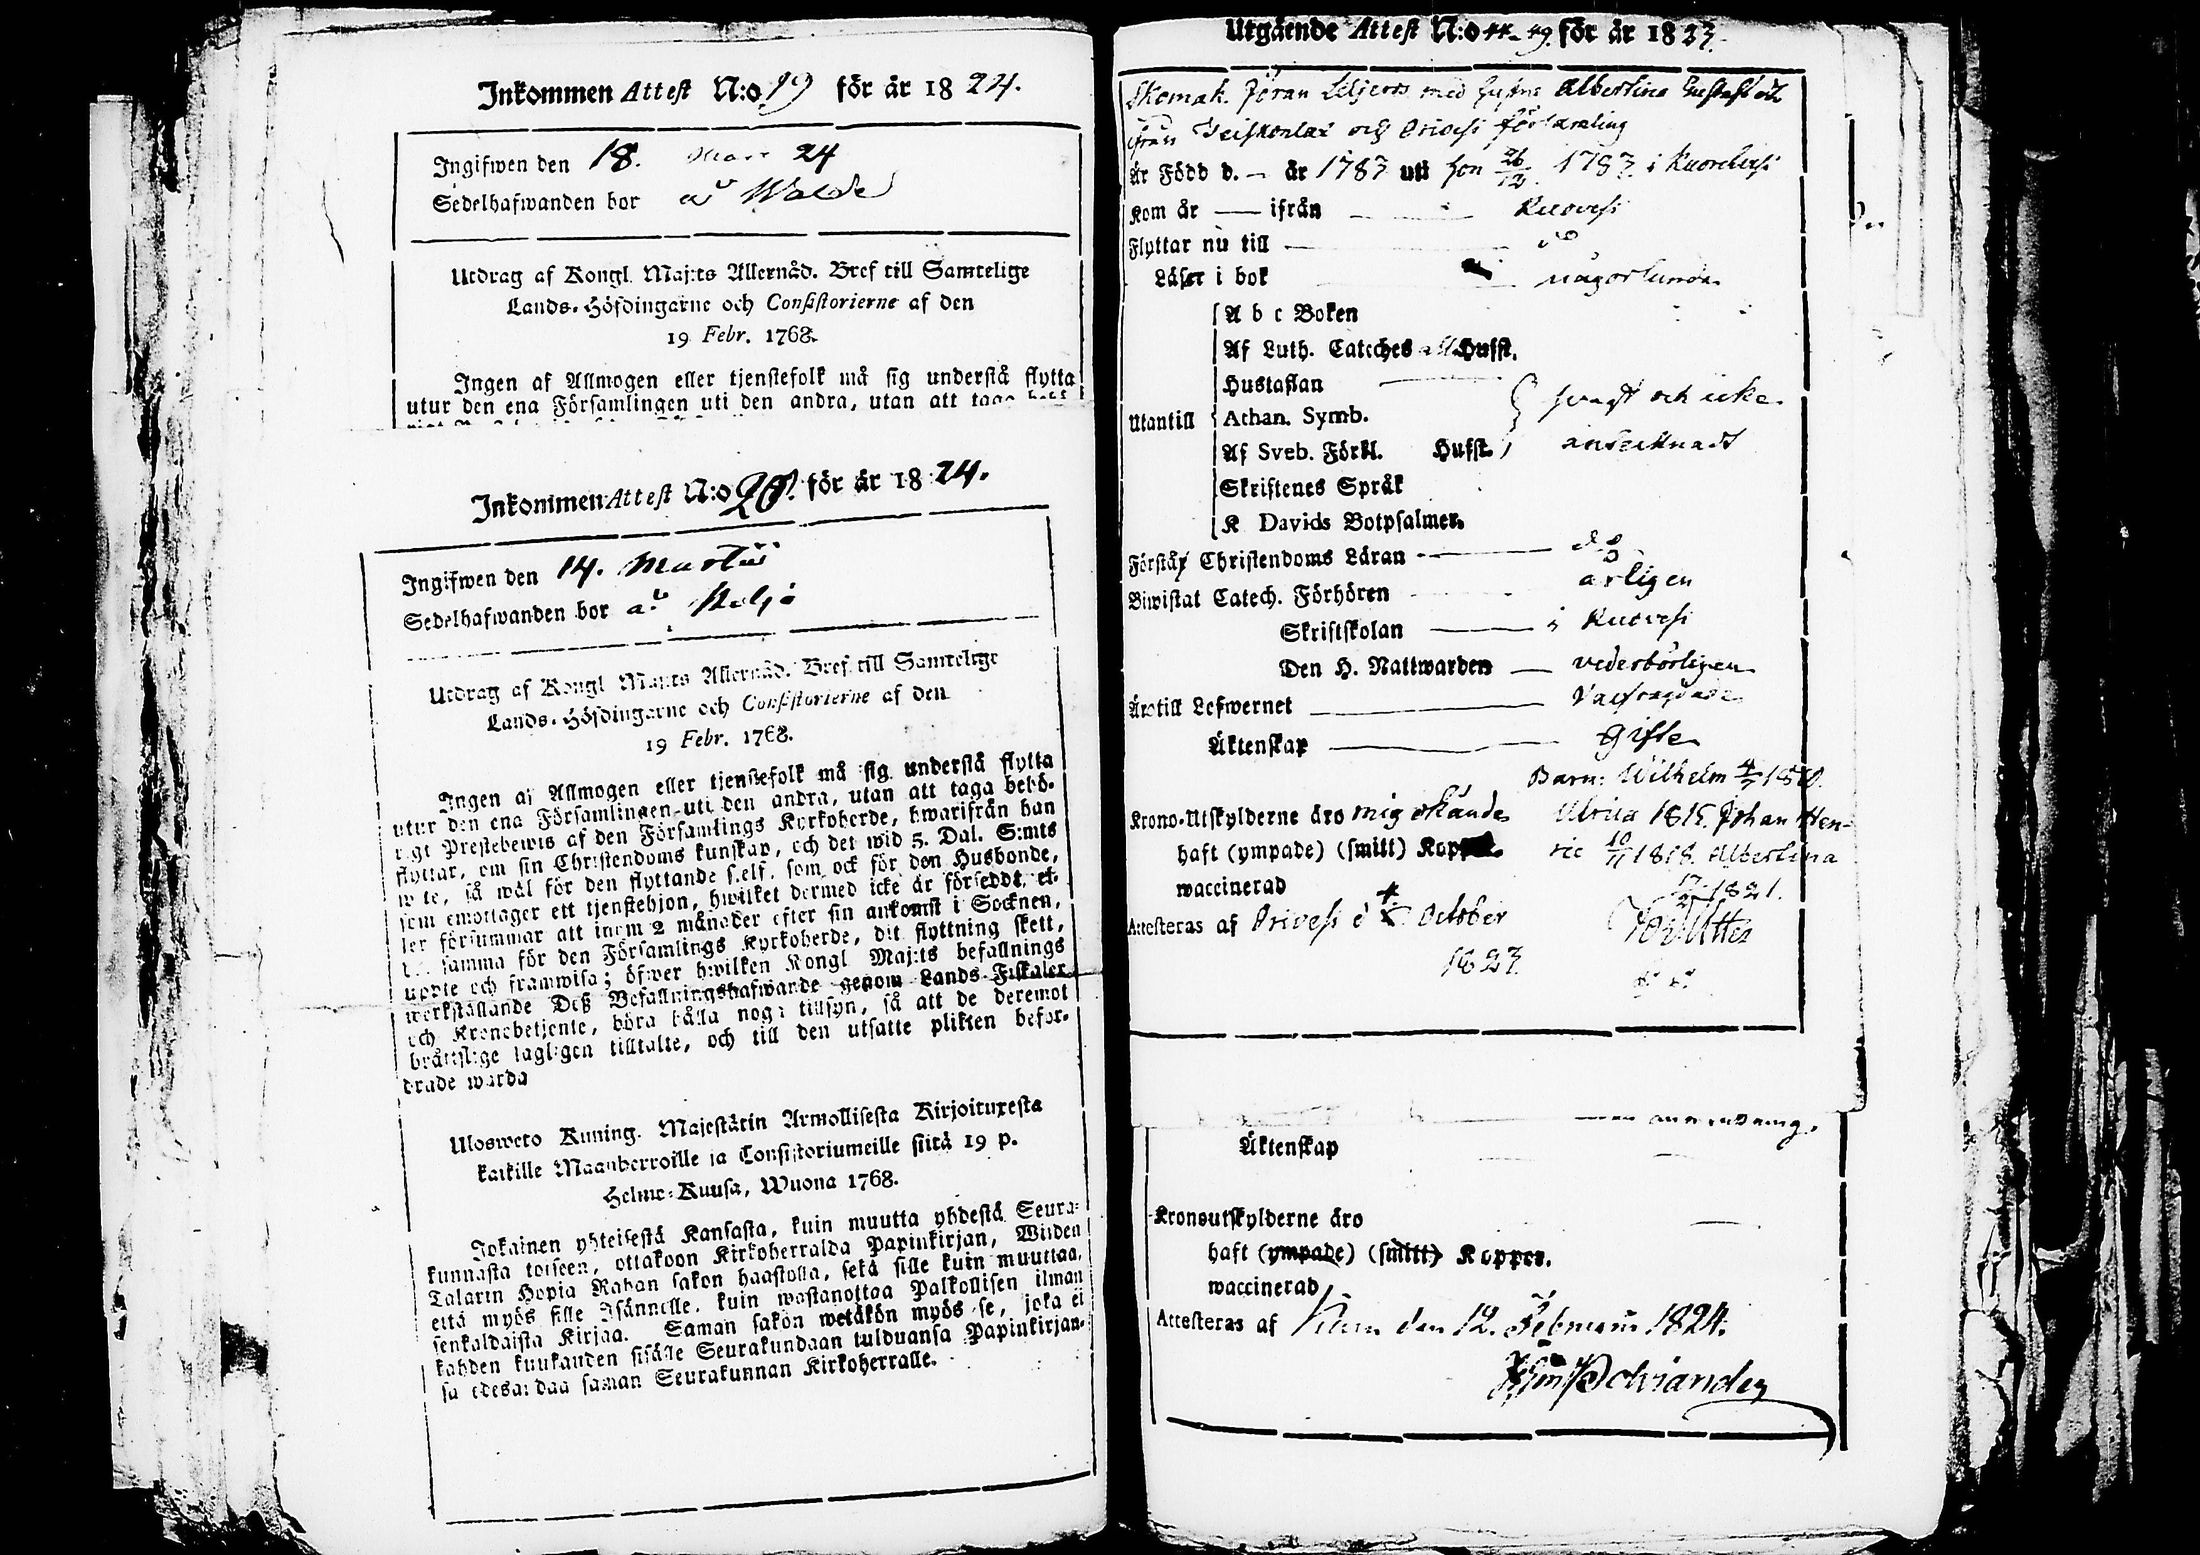 Inkommen Attest N:o 19 för år 1824.
Ingifwen den 18. Mars 24
Sedelhafwanden bor å Walde
Utdrag af Kongl. Maj:ts Allernåd. Bref till Samtelige
Lands-Höfdingarne och Consistorierne af den
19 Febr. 1768.
Ingen af Allmogen eller tjenstefolk må sig understå flytta
utur den ena Församlingen uti den andra, utan att taga
Inkommen Attest N:o 20. för år 1824.
Ingifwen den 14. Martii
Sedelhafwanden bor å
Utdrag af Kongl Maj:ts Allernåd. Bref till Samtelige
Lands-Höfdingarne och Consistorierne af den
19 Febr. 1768.
Ingen af Allmogen eller tjenstefolk må sig understå flytta
utur den ena Församlingen uti den andra, utan att taga behö-
rigt Prestebewis af den Församlings Kyrkoherde, hwarifrån han
flyttar, om sin Christendoms kunskap, och det wid 5. Dal. S:mts
wite, så wäl för den flyttande sielf, som ock för den Husbonde,
som emottager ett tjenstehjon, hwilket dermed icke är förseddt, el-
ler försummar att inom 2 månader efter sin ankomst i Socknen,
samma för den Församlings Kyrkoherde, dit flyttning skett,
uppte och framwisa; öfwer hwilken Kongl Maj:ts befallnings
werkställande Deß Befallningshafwande genom Lands-Fiskaler
och Kronobetjente, böra hålla noga tillsyn, så att de deremot
bråttslige lagligen tilltalte, och till den utsatte plikten befor-
drade warda
Uloswето Kuning. Majestätin Armollisesta Kirjoituxesta
kaikille Maanherroille ja Consistoriumeille siitä 19 p.
Helme-Kuusa, Wuona 1768.
Jokainen yhteisestä Kansasta, kuin muutta yhdestä Seura-
kunnasta toiseen, ottakoon Kirkoherralda Papinkirjan, Wiiden
Talarin Hopia Rahan sakon haastolla, sekä sille kuin muuttaa,
että myös sille Isännelle, kuin wastanottaa Palkollisen ilman
senkaldaista Kirjaa. Saman sakon wetäkön myös se, joka ei
kahden kuukauden sisälle Seurakundaan tulduansa Papinkirjan-
sa edesandaa saman Seurakunnan Kirkoherralle.
Utgående Attest N:o 44-49. för år 1823.
Skomak. Jöran Liljeroos med hustru Albertina Gustafsdr
ifrån och Orivesi församling
Är Född d. – år 1783 uti hon 26/12. 1783. i Kuorevesi
Kom år — ifrån — Kuovesi
Flyttar nu till — do
Läser i bok — någorlunda
A b c Boken
Af Luth. Catéches all Husst.
Hustaflan
Utantill Athan. Symb. svagt och icke
Af Sveb. Förkl. Husst. antecknadt
Skriftenes Språk
K Davids Botpsalmer.
Förstår Christendoms Läran — do
Biwistat Catech. Förhören årligen
Skriftskolan — i Kuovesi
Den H. Nattwarden — vederbörligen
Äro till Lefwernet — välfrägdade
Äktenskap — Gifte
Barn: Wilhelm 4/7 1810.
Krono-Utskylderne äro mig okände Ulrica 1815. Johan Hen-
haft (ympade) (smitt) Koppor ric 10/11 1818. Albertina
waccinerad 17/2 1821.
Attesteras af Orivesi d 4. October
1823
Äktenskap
Kronoutskylderne äro
haft (ympade) (smitt) Koppor.
waccinerad
Attesteras af den 12. Februarii 1824.